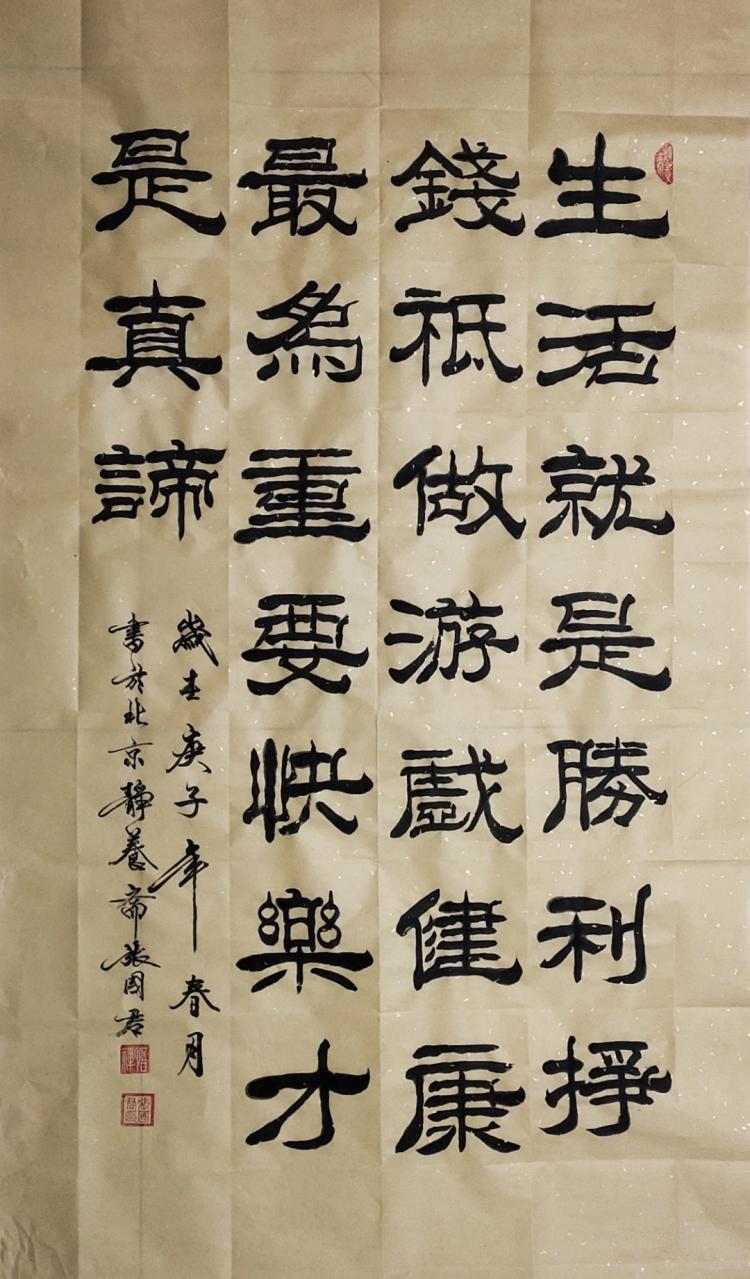 生活就是勝利掙
錢祗做游戲健康
最為重要快樂才
是真諦
歲在庚子年春月
書於北京靜養齋張國君